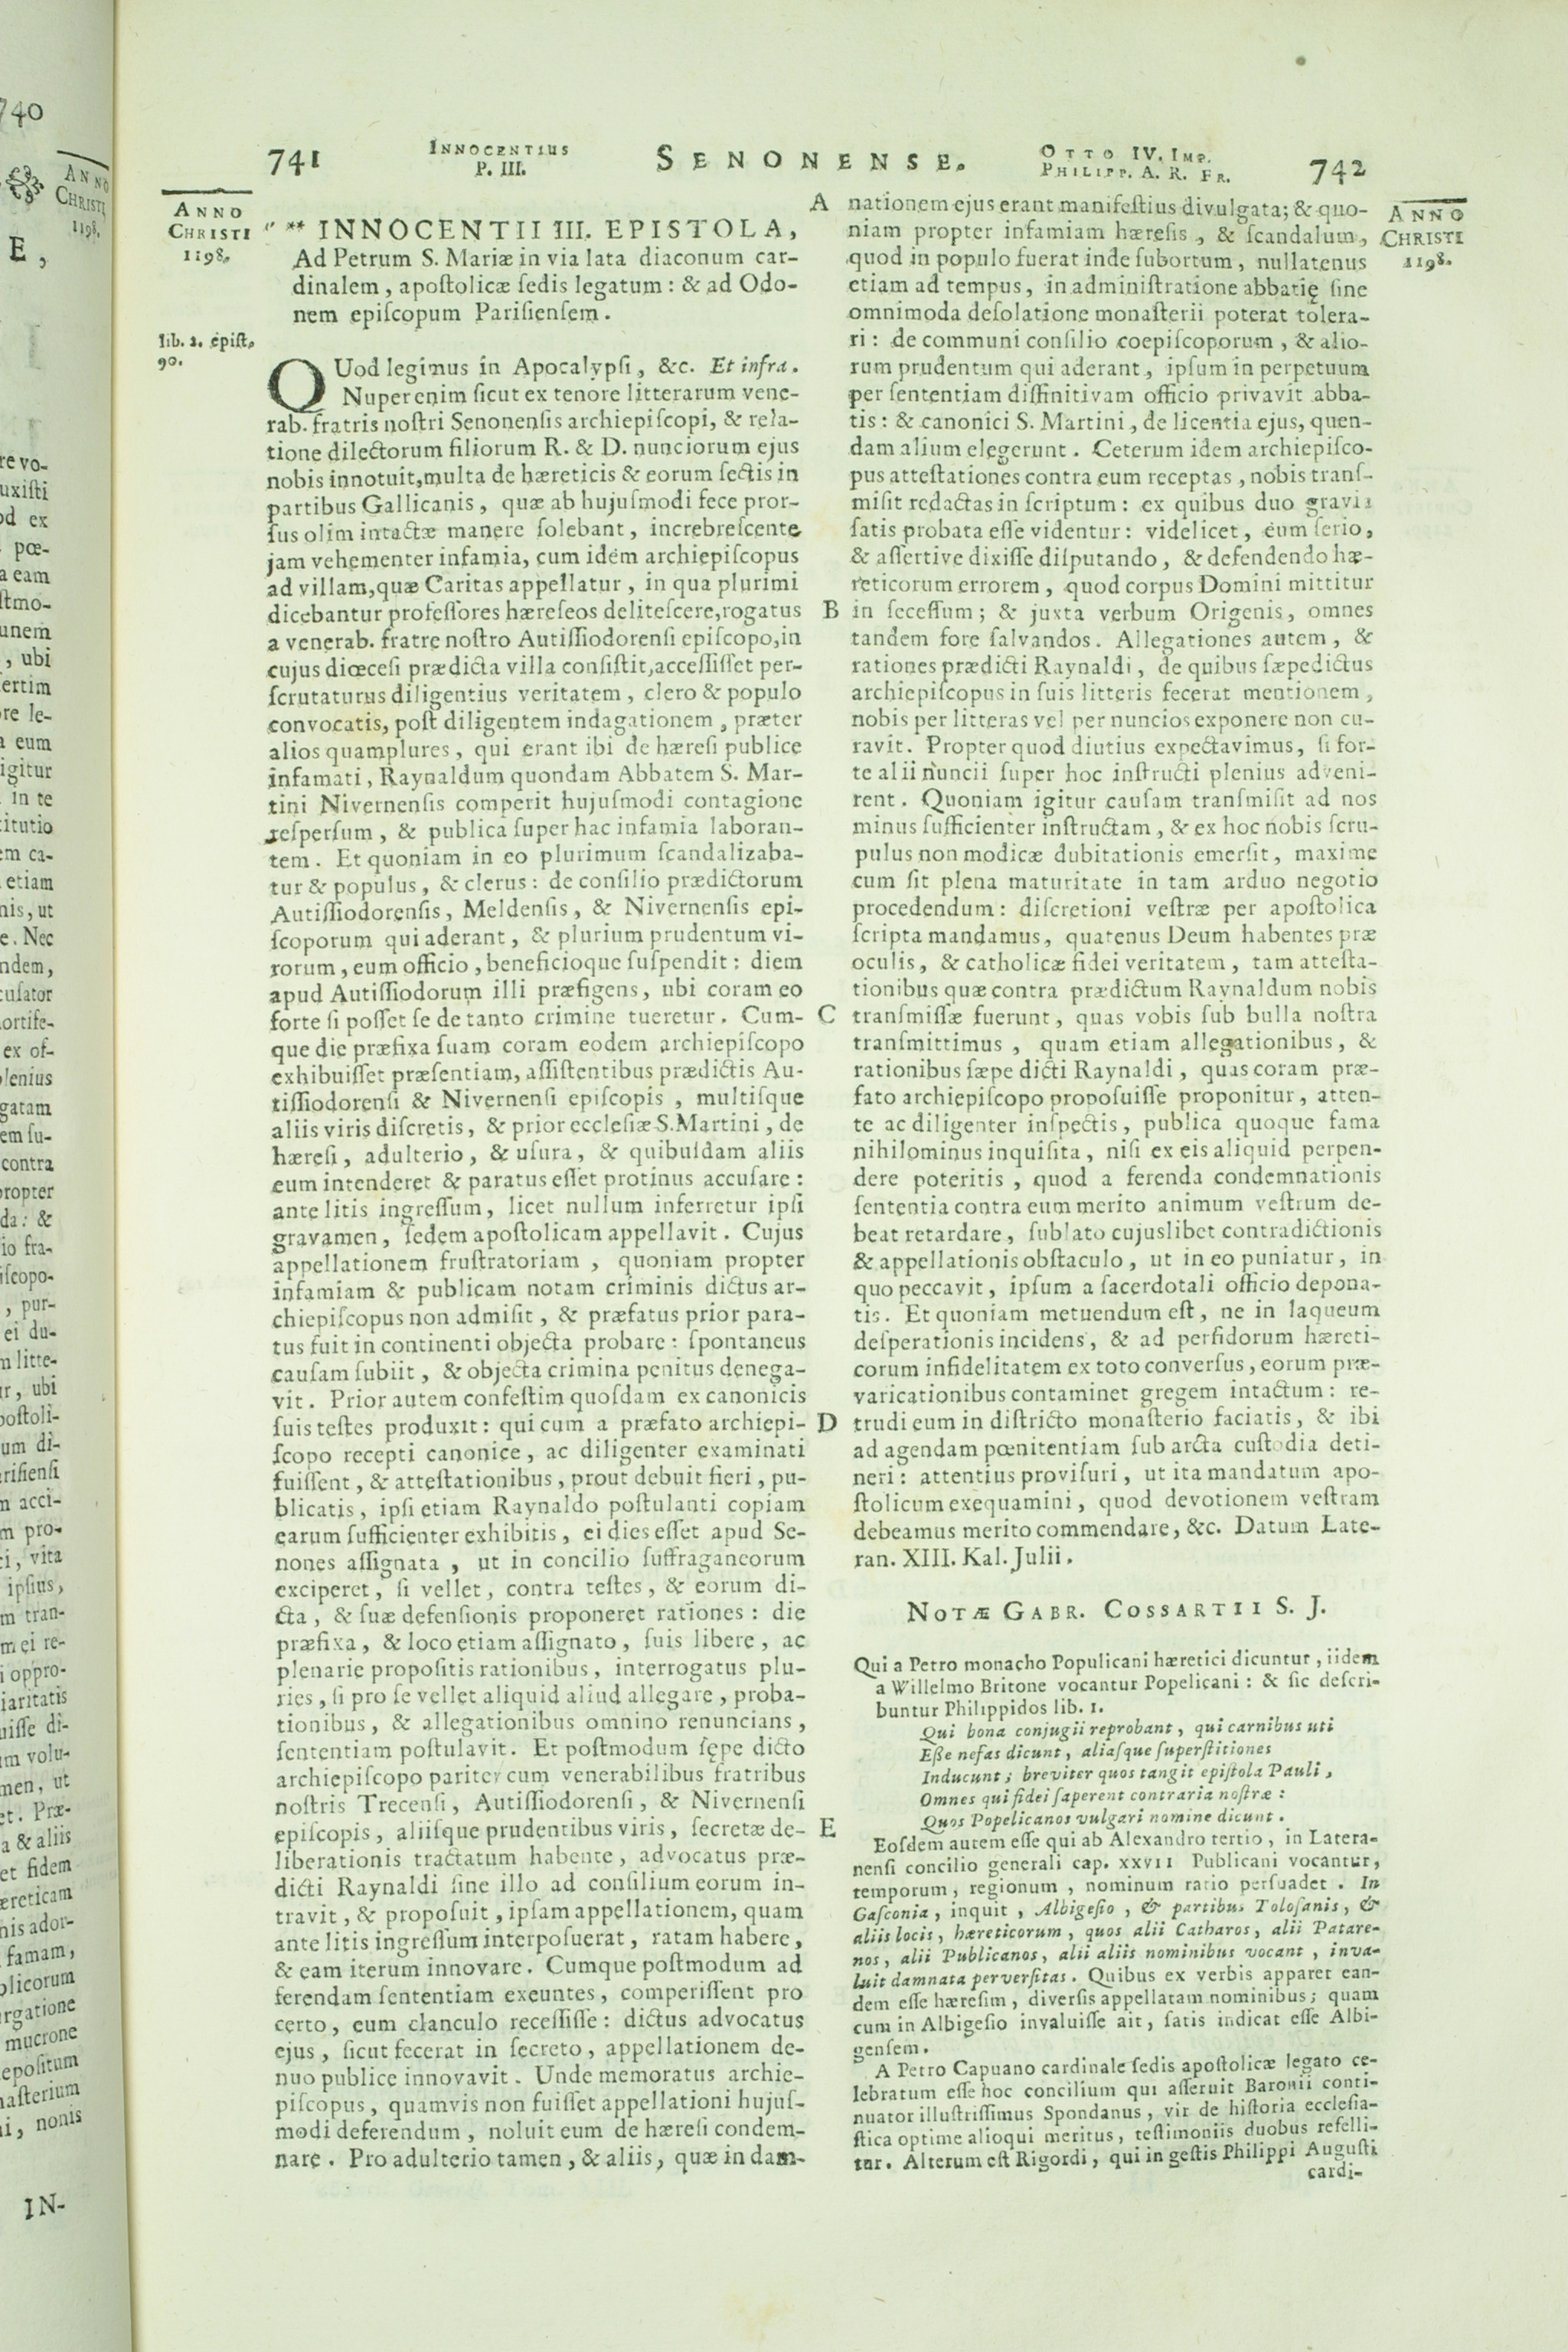 740
ANNO
CHRISTI
1198.
E,
re vo-
uxiſti
od ex
pœ-
a eam
ſtmo-
unem
, ubi
ertim
re le-
a eum
igitur
in te
titutio
em ca-
etiam
nis, ut
e. Nec
ndem,
cuſator
ortife-
ex of-
plenius
gatam
em ſu-
contra
propter
da: &
io fra-
iſcopo-
, pur-
ei du-
m litte-
ur, ubi
poſtoli-
um di-
riſienſi
m acci-
m pro-
ri, vita
ipſius,
m tran-
m ei re-
i oppro-
iaritatis
uiſſe di-
um volu-
men, ut
et. Præ-
a & aliis
et fidem
æreticam
nis ador-
famam,
blicorum
rgatione
mucrone
epoſitum
naſterium
ni, nonis
IN-
741
INNOCENTIUS
P. III.
SENONENSE.
OTTO IV. IMP.
PHILIPP. A. R. FR.
742
ANNO
CHRISTI
1198.
** INNOCENTII III. EPISTOLA,
Ad Petrum S. Mariæ in via lata diaconum car-
dinalem, apoſtolicæ ſedis legatum: & ad Odo-
nem epiſcopum Pariſienſem.
lib. 2. epiſt.
90.
QUod legimus in Apocalypſi, &c. Et infra.
Nuper enim ſicut ex tenore litterarum vene-
rab. fratris noſtri Senonenſis archiepiſcopi, & rela-
tione dilectorum filiorum R. & D. nunciorum ejus
nobis innotuit, multa de hæreticis & eorum ſectis in
partibus Gallicanis, quæ ab hujuſmodi fece pror-
ſus olim intactæ manere ſolebant, increbreſcente
jam vehementer infamia, cum idem archiepiſcopus
ad villam, quæ Caritas appellatur, in qua plurimi
dicebantur profeſſores hæreſeos deliteſcere, rogatus
a venerab. fratre noſtro Autiſſiodorenſi epiſcopo, in
cujus diœceſi prædicta villa conſiſtit, acceſſiſſet per-
ſcrutaturus diligentius veritatem, clero & populo
convocatis, poſt diligentem indagationem, præter
alios quamplures, qui erant ibi de hæreſi publice
infamati, Raynaldum quondam Abbatem S. Mar-
tini Nivernenſis comperit hujuſmodi contagione
reſperſum, & publica ſuper hac infamia laboran-
tem. Et quoniam in eo plurimum ſcandalizaba-
tur & populus, & clerus: de conſilio prædictorum
Autiſſiodorenſis, Meldenſis, & Nivernenſis epi-
ſcoporum qui aderant, & plurium prudentum vi-
rorum, eum officio, beneficioque ſuſpendit: diem
apud Autiſſiodorum illi præfigens, ubi coram eo
forte ſi poſſet ſe de tanto crimine tueretur. Cum-
que die præfixa ſuam coram eodem archiepiſcopo
exhibuiſſet præſentiam, aſſiſtentibus prædictis Au-
tiſſiodorenſi & Nivernenſi epiſcopis, multiſque
aliis viris diſcretis, & prior eccleſiæ S. Martini, de
hæreſi, adulterio, & uſura, & quibuſdam aliis
eum intenderet & paratus eſſet protinus accuſare:
ante litis ingreſſum, licet nullum inferretur ipſi
gravamen, ſedem apoſtolicam appellavit. Cujus
appellationem fruſtratoriam, quoniam propter
infamiam & publicam notam criminis dictus ar-
chiepiſcopus non admiſit, & præfatus prior para-
tus fuit in continenti objecta probare: ſpontaneus
cauſam ſubiit, & objecta crimina penitus denega-
vit. Prior autem confeſtim quoſdam ex canonicis
ſuis teſtes produxit: qui cum a præfato archiepi-
ſcopo recepti canonice, ac diligenter examinati
fuiſſent, & atteſtationibus, prout debuit fieri, pu-
blicatis, ipſi etiam Raynaldo poſtulanti copiam
earum ſufficienter exhibitis, ei dies eſſet apud Se-
nones aſſignata, ut in concilio ſuffraganeorum
exciperet, ſi vellet, contra teſtes, & eorum di-
cta, & ſuæ defenſionis proponeret rationes: die
præfixa, & loco etiam aſſignato, ſuis libere, ac
plenarie propoſitis rationibus, interrogatus plu-
ries, ſi pro ſe vellet aliquid aliud allegare, proba-
tionibus, & allegationibus omnino renuncians,
ſententiam poſtulavit. Et poſtmodum ſępe dicto
archiepiſcopo pariter cum venerabilibus fratribus
noſtris Trecenſi, Autiſſiodorenſi, & Nivernenſi
epiſcopis, aliiſque prudentibus viris, ſecretæ de-
liberationis tractatum habente, advocatus præ-
dicti Raynaldi ſine illo ad conſilium eorum in-
travit, & propoſuit, ipſam appellationem, quam
ante litis ingreſſum interpoſuerat, ratam habere,
& eam iterum innovare. Cumque poſtmodum ad
ferendam ſententiam exeuntes, comperiſſent pro
certo, eum clanculo receſſiſſe: dictus advocatus
ejus, ſicut fecerat in ſecreto, appellationem de-
nuo publice innovavit. Unde memoratus archie-
piſcopus, quamvis non fuiſſet appellationi hujuſ-
modi deferendum, noluit eum de hæreſi condem-
nare. Pro adulterio tamen, & aliis, quæ in dam-
A
B
C
D
E
nationem ejus erant manifeſtius divulgata; & quo-
niam propter infamiam hæreſis, & ſcandalum,
quod in populo fuerat inde ſubortum, nullatenus
etiam ad tempus, in adminiſtratione abbatię ſine
omnimoda deſolatione monaſterii poterat tolera-
ri: de communi conſilio coepiſcoporum, & alio-
rum prudentum qui aderant, ipſum in perpetuum
per ſententiam diffinitivam officio privavit abba-
tis: & canonici S. Martini, de licentia ejus, quen-
dam alium elegerunt. Ceterum idem archiepiſco-
pus atteſtationes contra eum receptas, nobis tranſ-
miſit redactas in ſcriptum: ex quibus duo gravia
ſatis probata eſſe videntur: videlicet, eum ſerio,
& aſſertive dixiſſe diſputando, & defendendo hæ-
reticorum errorem, quod corpus Domini mittitur
in ſeceſſum; & juxta verbum Origenis, omnes
tandem fore ſalvandos. Allegationes autem, &
rationes prædicti Raynaldi, de quibus ſæpedictus
archiepiſcopus in ſuis litteris fecerat mentionem,
nobis per litteras vel per nuncios exponere non cu-
ravit. Propter quod diutius expectavimus, ſi for-
te alii nuncii ſuper hoc inſtructi plenius adveni-
rent. Quoniam igitur cauſam tranſmiſit ad nos
minus ſufficienter inſtructam, & ex hoc nobis ſcru-
pulus non modicæ dubitationis emerſit, maxime
cum ſit plena maturitate in tam arduo negotio
procedendum: diſcretioni veſtræ per apoſtolica
ſcripta mandamus, quatenus Deum habentes præ
oculis, & catholicæ fidei veritatem, tam atteſta-
tionibus quæ contra prædictum Raynaldum nobis
tranſmiſſæ fuerunt, quas vobis ſub bulla noſtra
tranſmittimus, quam etiam allegationibus, &
rationibus ſæpe dicti Raynaldi, quas coram præ-
fato archiepiſcopo propoſuiſſe proponitur, atten-
te ac diligenter inſpectis, publica quoque fama
nihilominus inquiſita, niſi ex eis aliquid perpen-
dere poteritis, quod a ferenda condemnationis
ſententia contra eum merito animum veſtrum de-
beat retardare, ſublato cujuslibet contradictionis
& appellationis obſtaculo, ut in eo puniatur, in
quo peccavit, ipſum a ſacerdotali officio depona-
tis. Et quoniam metuendum eſt, ne in laqueum
deſperationis incidens, & ad perfidorum hæreti-
corum infidelitatem ex toto converſus, eorum præ-
varicationibus contaminet gregem intactum: re-
trudi eum in diſtricto monaſterio faciatis, & ibi
ad agendam pœnitentiam ſub arcta cuſtodia deti-
neri: attentius proviſuri, ut ita mandatum apo-
ſtolicum exequamini, quod devotionem veſtram
debeamus merito commendare, &c. Datum Late-
ran. XIII. Kal. Julii.
NOTÆ GABR. COSSARTII S. J.
Qui a Petro monacho Populicani hæretici dicuntur, iidem
a Willelmo Britone vocantur Popelicani: & ſic deſcri-
buntur Philippidos lib. 1.
Qui bona conjugii reprobant, qui carnibus uti
Eſſe nefas dicunt, aliaſque ſuperſtitiones
Inducunt; breviter quos tangit epiſtola Pauli,
Omnes qui fidei ſaperent contraria noſtræ:
Quos Popelicanos vulgari nomine dicunt.
Eoſdem autem eſſe qui ab Alexandro tertio, in Latera-
nenſi concilio generali cap. XXVII Publicani vocantur,
temporum, regionum, nominum ratio perſuadet. In
Gaſconia, inquit, Albigeſio, & partibus Toloſanis, &
aliis locis, hæreticorum, quos alii Catharos, alii Patare-
nos, alii Publicanos, alii aliis nominibus vocant, inva-
luit damnata perverſitas. Quibus ex verbis apparet ean-
dem eſſe hæreſim, diverſis appellatam nominibus; quam
cum in Albigeſio invaluiſſe ait, ſatis indicat eſſe Albi-
genſem.
A Petro Capuano cardinale ſedis apoſtolicæ legato ce-
lebratum eſſe hoc concilium qui aſſeruit Baronii conti-
nuator illuſtriſſimus Spondanus, vir de hiſtoria eccleſia-
ſtica optime alioqui meritus, teſtimoniis duobus refelli-
tur. Alterum eſt Rigordi, qui in geſtis Philippi Auguſti
cardi-
ANNO
CHRISTI
1198.